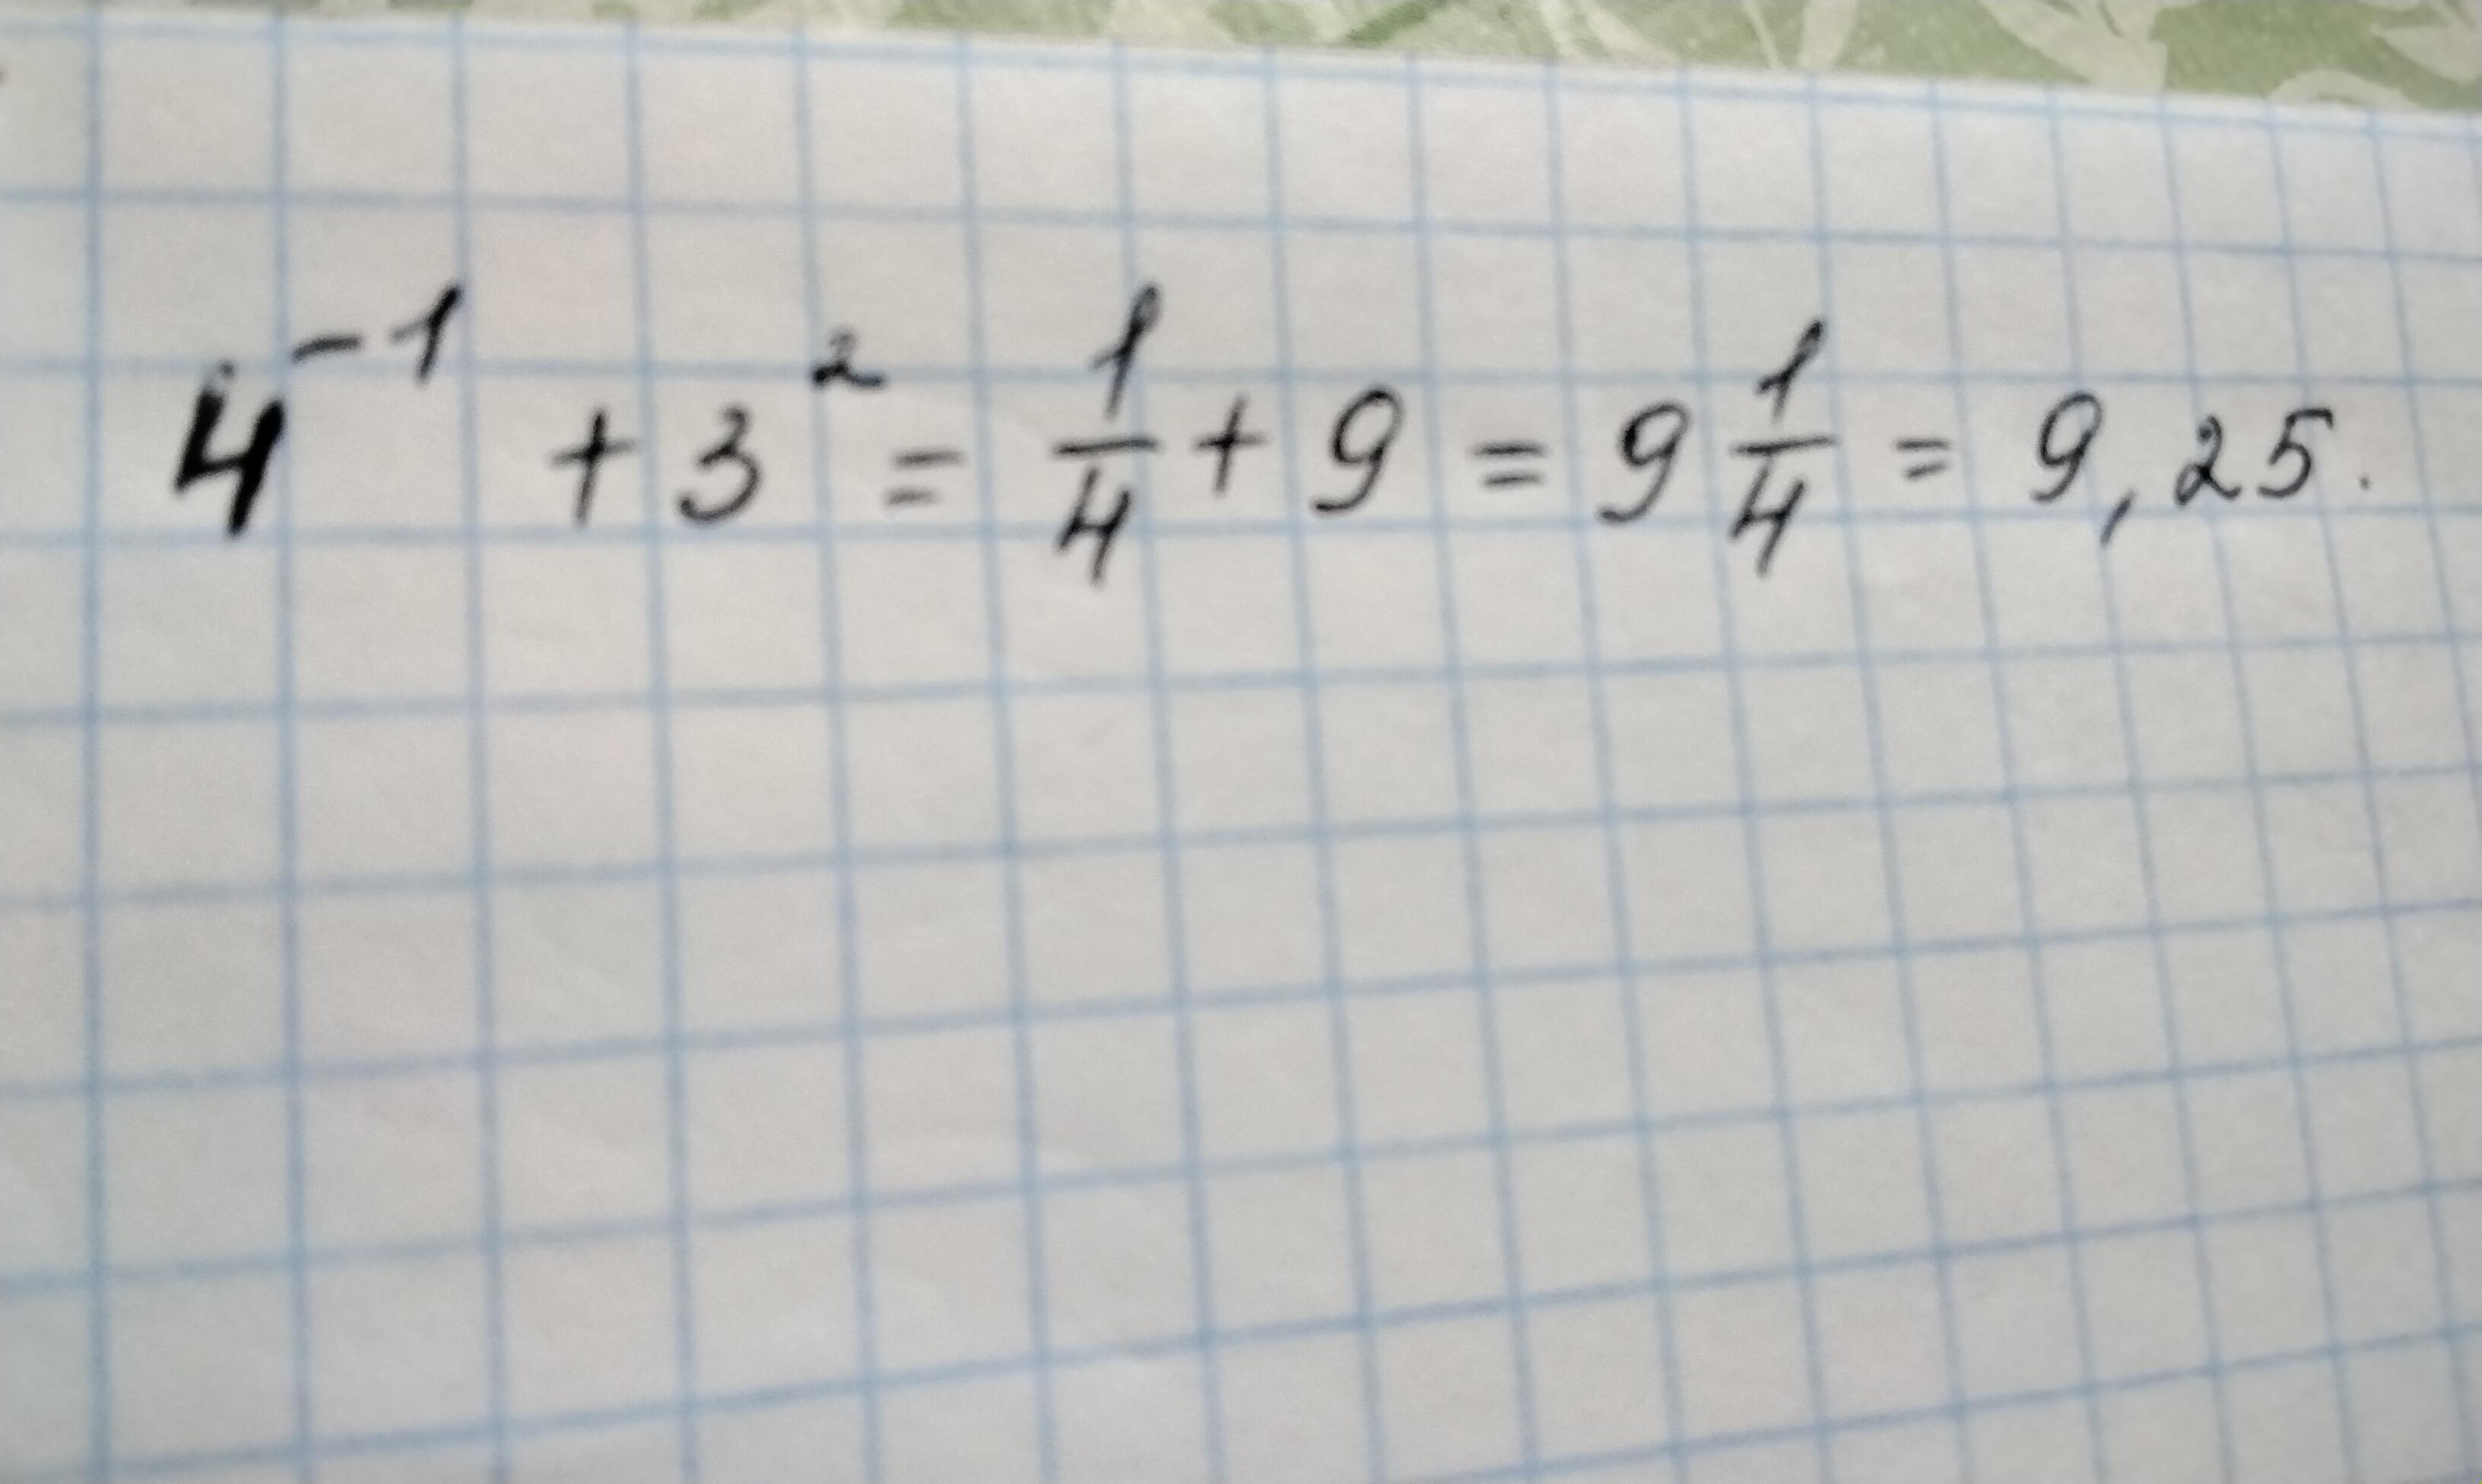 4⁻¹ + 3² = 1/4 + 9 = 9 1/4 = 9,25.